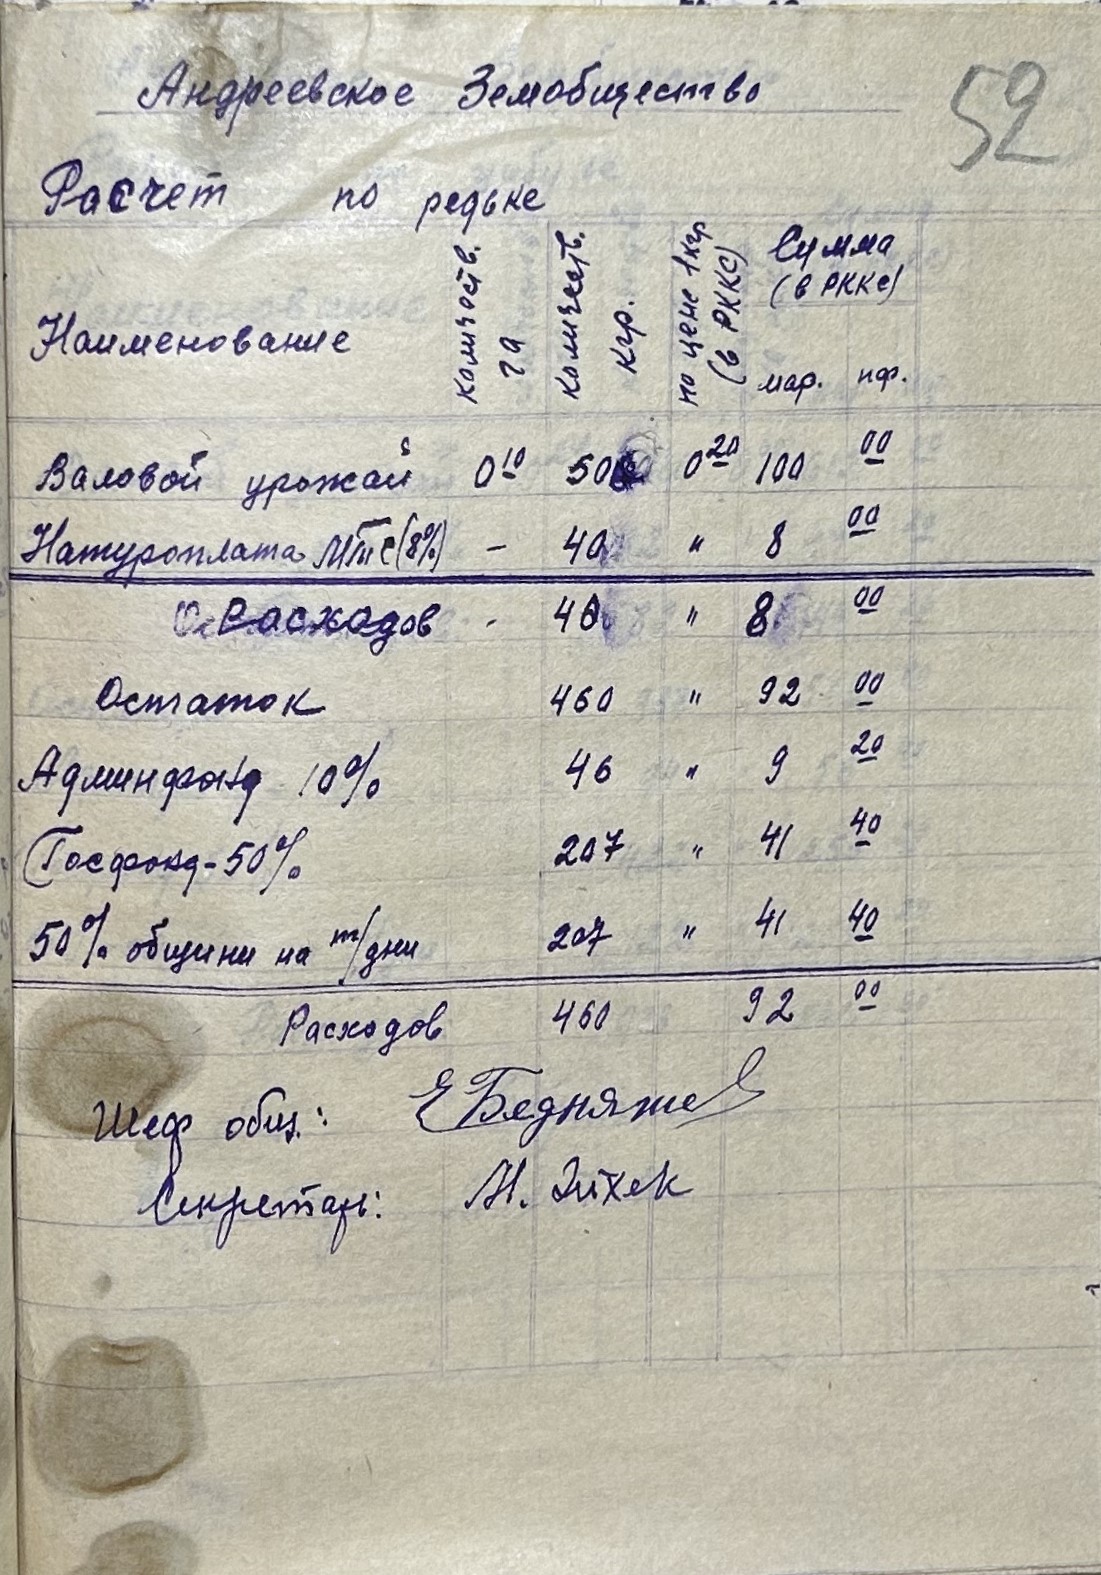 52
Андреевское Земобщество
Расчет по редьке
Наименование количеств. га количеств. кгр. по цене 1 кгр (в РККС) Сумма (в РККС) мар. пф.
Валовой урожай 0 10 500 0 20 100 00
Натуроплата МТС (8%) - 40 " 8 00
Расходов - 40 " 8 00
Остаток 460 " 92 00
Админфонд 10% 46 " 9 20
Госфонд - 50% 207 " 41 40
50% общини на т/дни 207 " 41 40
Расходов 460 92 00
Шеф общ.: Е Бедняже
Секретарь: Н.